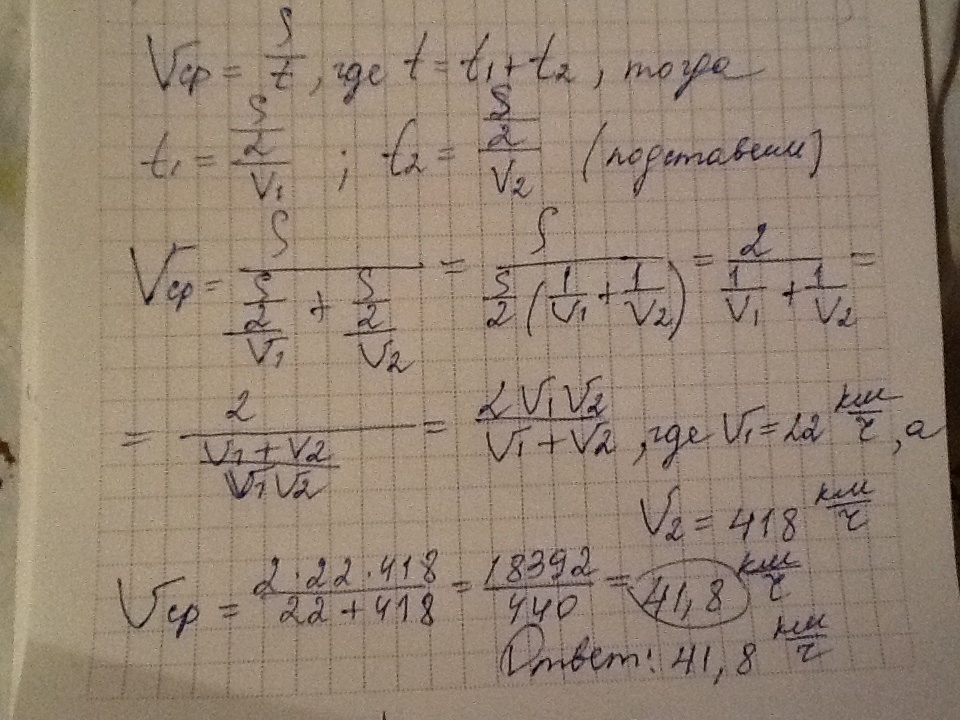 Vср = S/t, где t = t₁ + t₂, тогда
t₁ = (S/2)/V₁ ; t₂ = (S/2)/V₂ (подставим)
Vср = S/((S/2)/V₁ + (S/2)/V₂) = S/(S/2 (1/V₁ + 1/V₂)) = 2/(1/V₁ + 1/V₂) =
= 2/((V₁ + V₂)/(V₁V₂)) = 2V₁V₂/(V₁ + V₂), где V₁ = 22 км/ч, а
V₂ = 418 км/ч
Vср = (2·22·418)/(22 + 418) = 18392/440 = 41,8 км/ч
Ответ: 41,8 км/ч